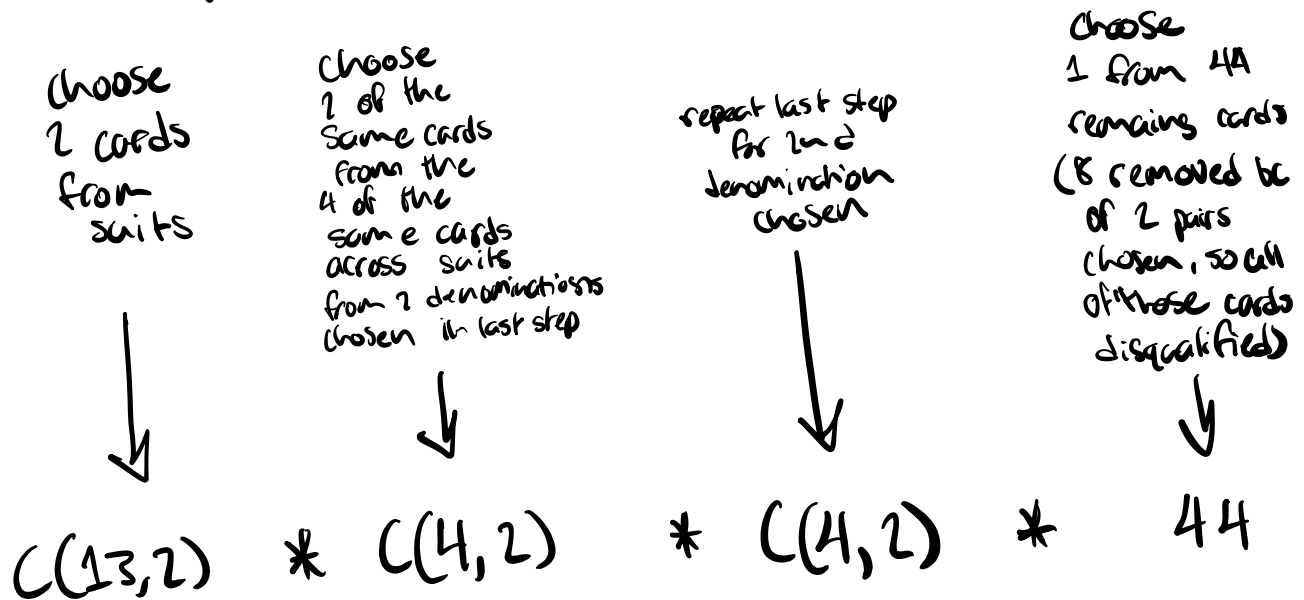 choose
2 cards
from
suits
choose
2 of the
same cards
from the
4 of the
same cards
across suits
from 2 denominations
chosen in last step
repeat last step
for 2nd
denomination
chosen
choose
1 from 44
remaining cards
(8 removed bc
of 2 pairs
chosen, so all
of those cards
disqualified)
C(13,2) * C(4,2) * C(4,2) * 44